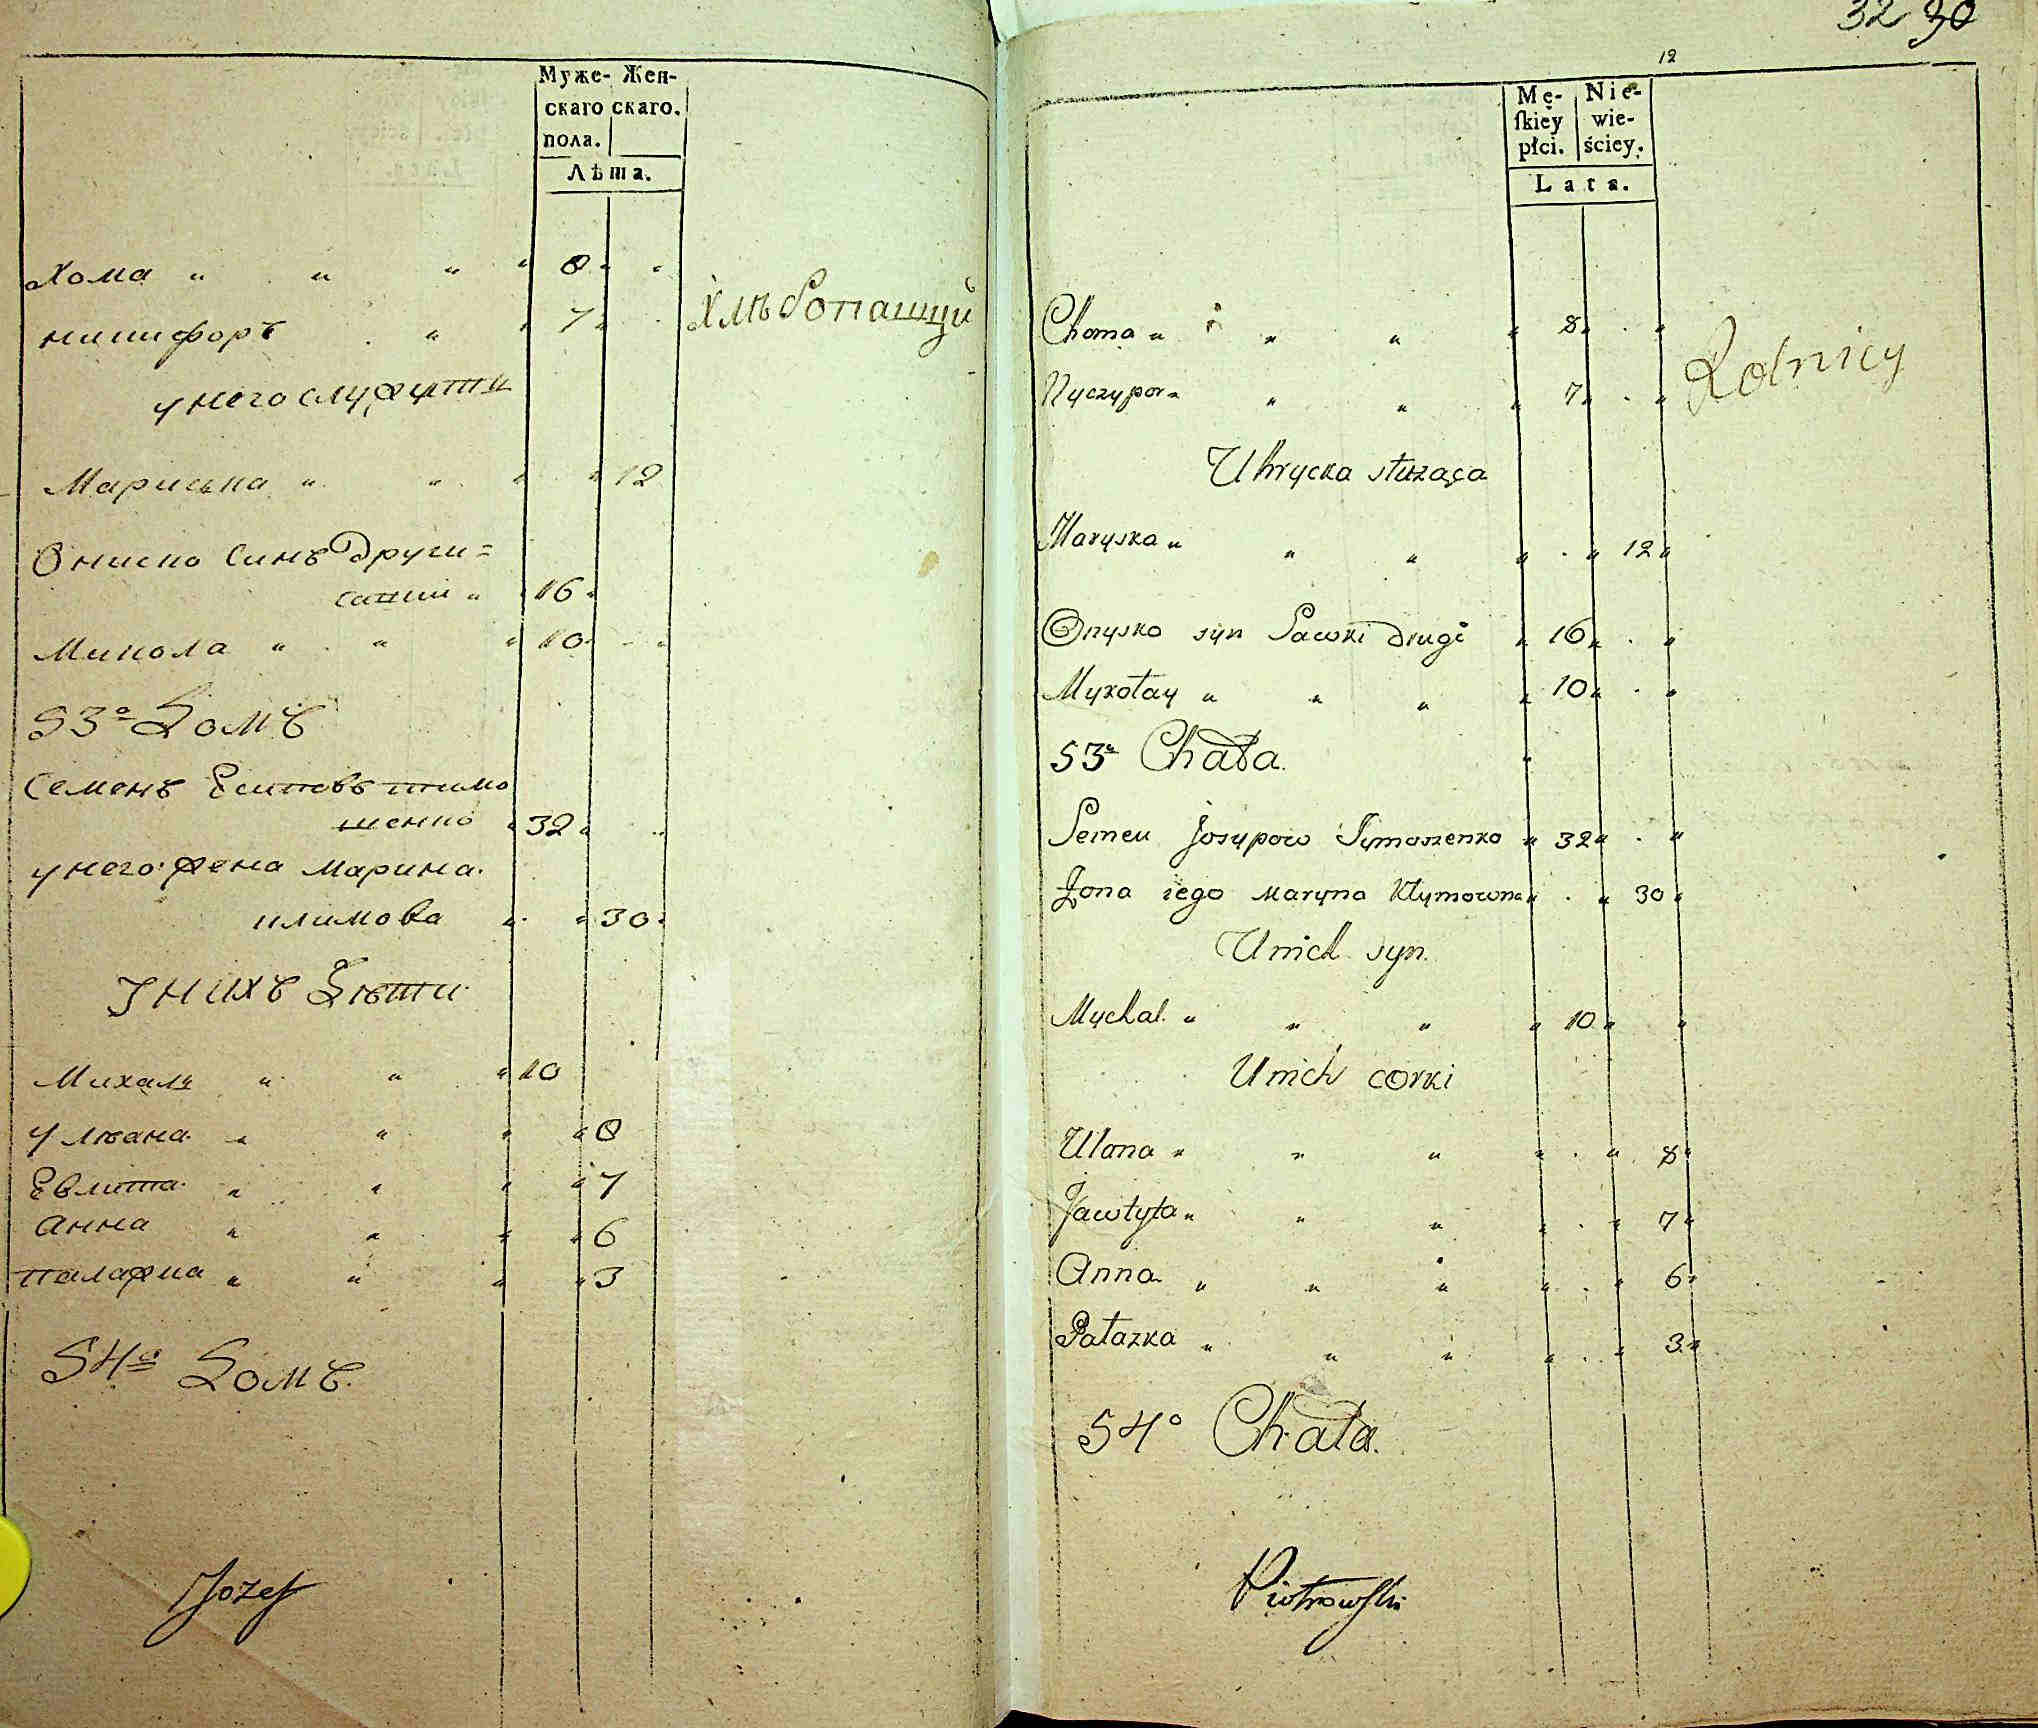 Муже- Жен-
скаго скаго.
пола.
Лѣта.
Хома " " " " 8 " "
никифоръ " " 7 "
Хлѣбопашцы
у него служити
Мариська " " " " 12
Ониско Синъ Други=
" 16 "
Микола " " " 10 " "
53º Домъ
Семенъ Есиповъ тимо
шенко " 32 " "
у него жена Марина
климова " " 30 "
У нихъ Дѣти
Михаль " " " 10
Улѣана " " " " 8
Евлита " " " " 7
Анна " " " " 6
палажка " " " " 3
54º Домъ.
Jozef
32 30
12
Mę- Nie-
ſkiey wie-
płci. ściey.
Lata.
Choma " " " " " 8 " . "
Nyczypor " " " " 7 " . "
Rolnicy
U hrycka służąca
Maryska " " " " . " 12 "
Onysko syn Sawki drugi " 16 " . "
Mykołay " " " " 10 " . "
53º Chata.
Semen Josypow Tymoszenko " 32 " . "
Żona iego Maryna Klymowna " . " 30 "
U nich syn.
Mychal. " " " " 10 " "
U nich corki
Ulana " " " " . " 8 "
Jawtyta " " " " . " 7 "
Anna " " " " . " 6 "
Pałazka " " " " . " 3 "
54º Chata.
Piotrowſki